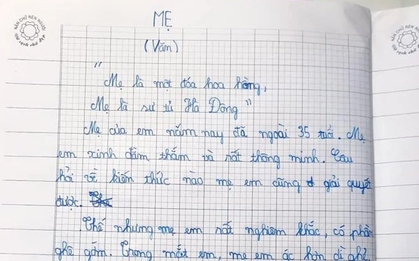 MẸ
(Văn)
"
Mẹ là một đóa hoa hồng,
Mẹ là sư tử Hà Đông"
Mẹ của em năm nay đã ngoài 35 tuổi. Mẹ
em xinh đằm thắm và rất thông minh. Câu
hỏi về kiến thức nào mẹ em cũng giải quyết
được.
Thế nhưng mẹ em rất nghiêm khắc, có phần
ghê gớm. Trong mắt em, mẹ em ác hơn dì ghẻ